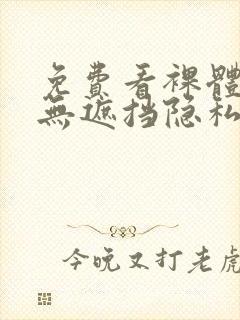 免費看裸體
無遮挡隐私
今晚又打老虎